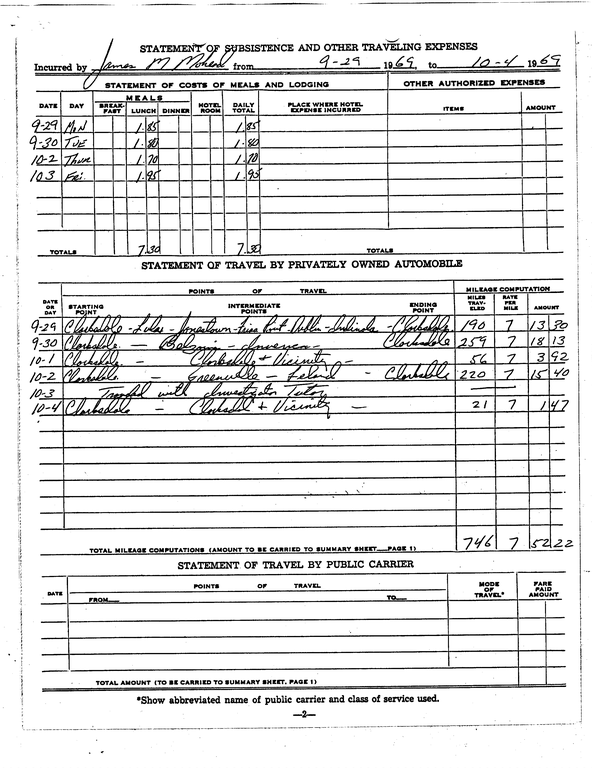 STATEMENT OF SUBSISTENCE AND OTHER TRAVELING EXPENSES
Incurred by James M Mohead from 9-29 1969, to 10-4 1969
STATEMENT OF COSTS OF MEALS AND LODGING OTHER AUTHORIZED EXPENSES
DATE DAY MEALS BREAK-FAST LUNCH DINNER HOTEL ROOM DAILY TOTAL PLACE WHERE HOTEL EXPENSE INCURRED ITEMS AMOUNT
9-29 MON 1.85 1.85
9-30 TUE 1.80 1.80
10-2 Thur 1.70 1.70
10-3 Fri. 1.95 1.95
TOTALS 7.30 7.30 TOTALS
STATEMENT OF TRAVEL BY PRIVATELY OWNED AUTOMOBILE
POINTS OF TRAVEL MILEAGE COMPUTATION
DATE OR DAY STARTING POINT INTERMEDIATE POINTS ENDING POINT MILES TRAV-ELED RATE PER MILE AMOUNT
9-29 Clarksdale - Lula - Jonestown - - Clarksdale 190 7 13 30
9-30 Clarksdale — Belzoni - Inverness - Clarksdale 259 7 18 13
10-1 Clarksdale - Clarksdale + Vicinity - 56 7 3 92
10-2 Clarksdale - Greenville - Leland - Clarksdale 220 7 15 40
10-3 Traveled with Investigator —
10-4 Clarksdale - Clarksdale + Vicinity - 21 7 1 47
TOTAL MILEAGE COMPUTATIONS (AMOUNT TO BE CARRIED TO SUMMARY SHEET__PAGE 1) 746 7 52 22
STATEMENT OF TRAVEL BY PUBLIC CARRIER
DATE POINTS OF TRAVEL MODE OF TRAVEL* FARE PAID AMOUNT
FROM__ TO__
TOTAL AMOUNT (TO BE CARRIED TO SUMMARY SHEET, PAGE 1)
*Show abbreviated name of public carrier and class of service used.
—2—